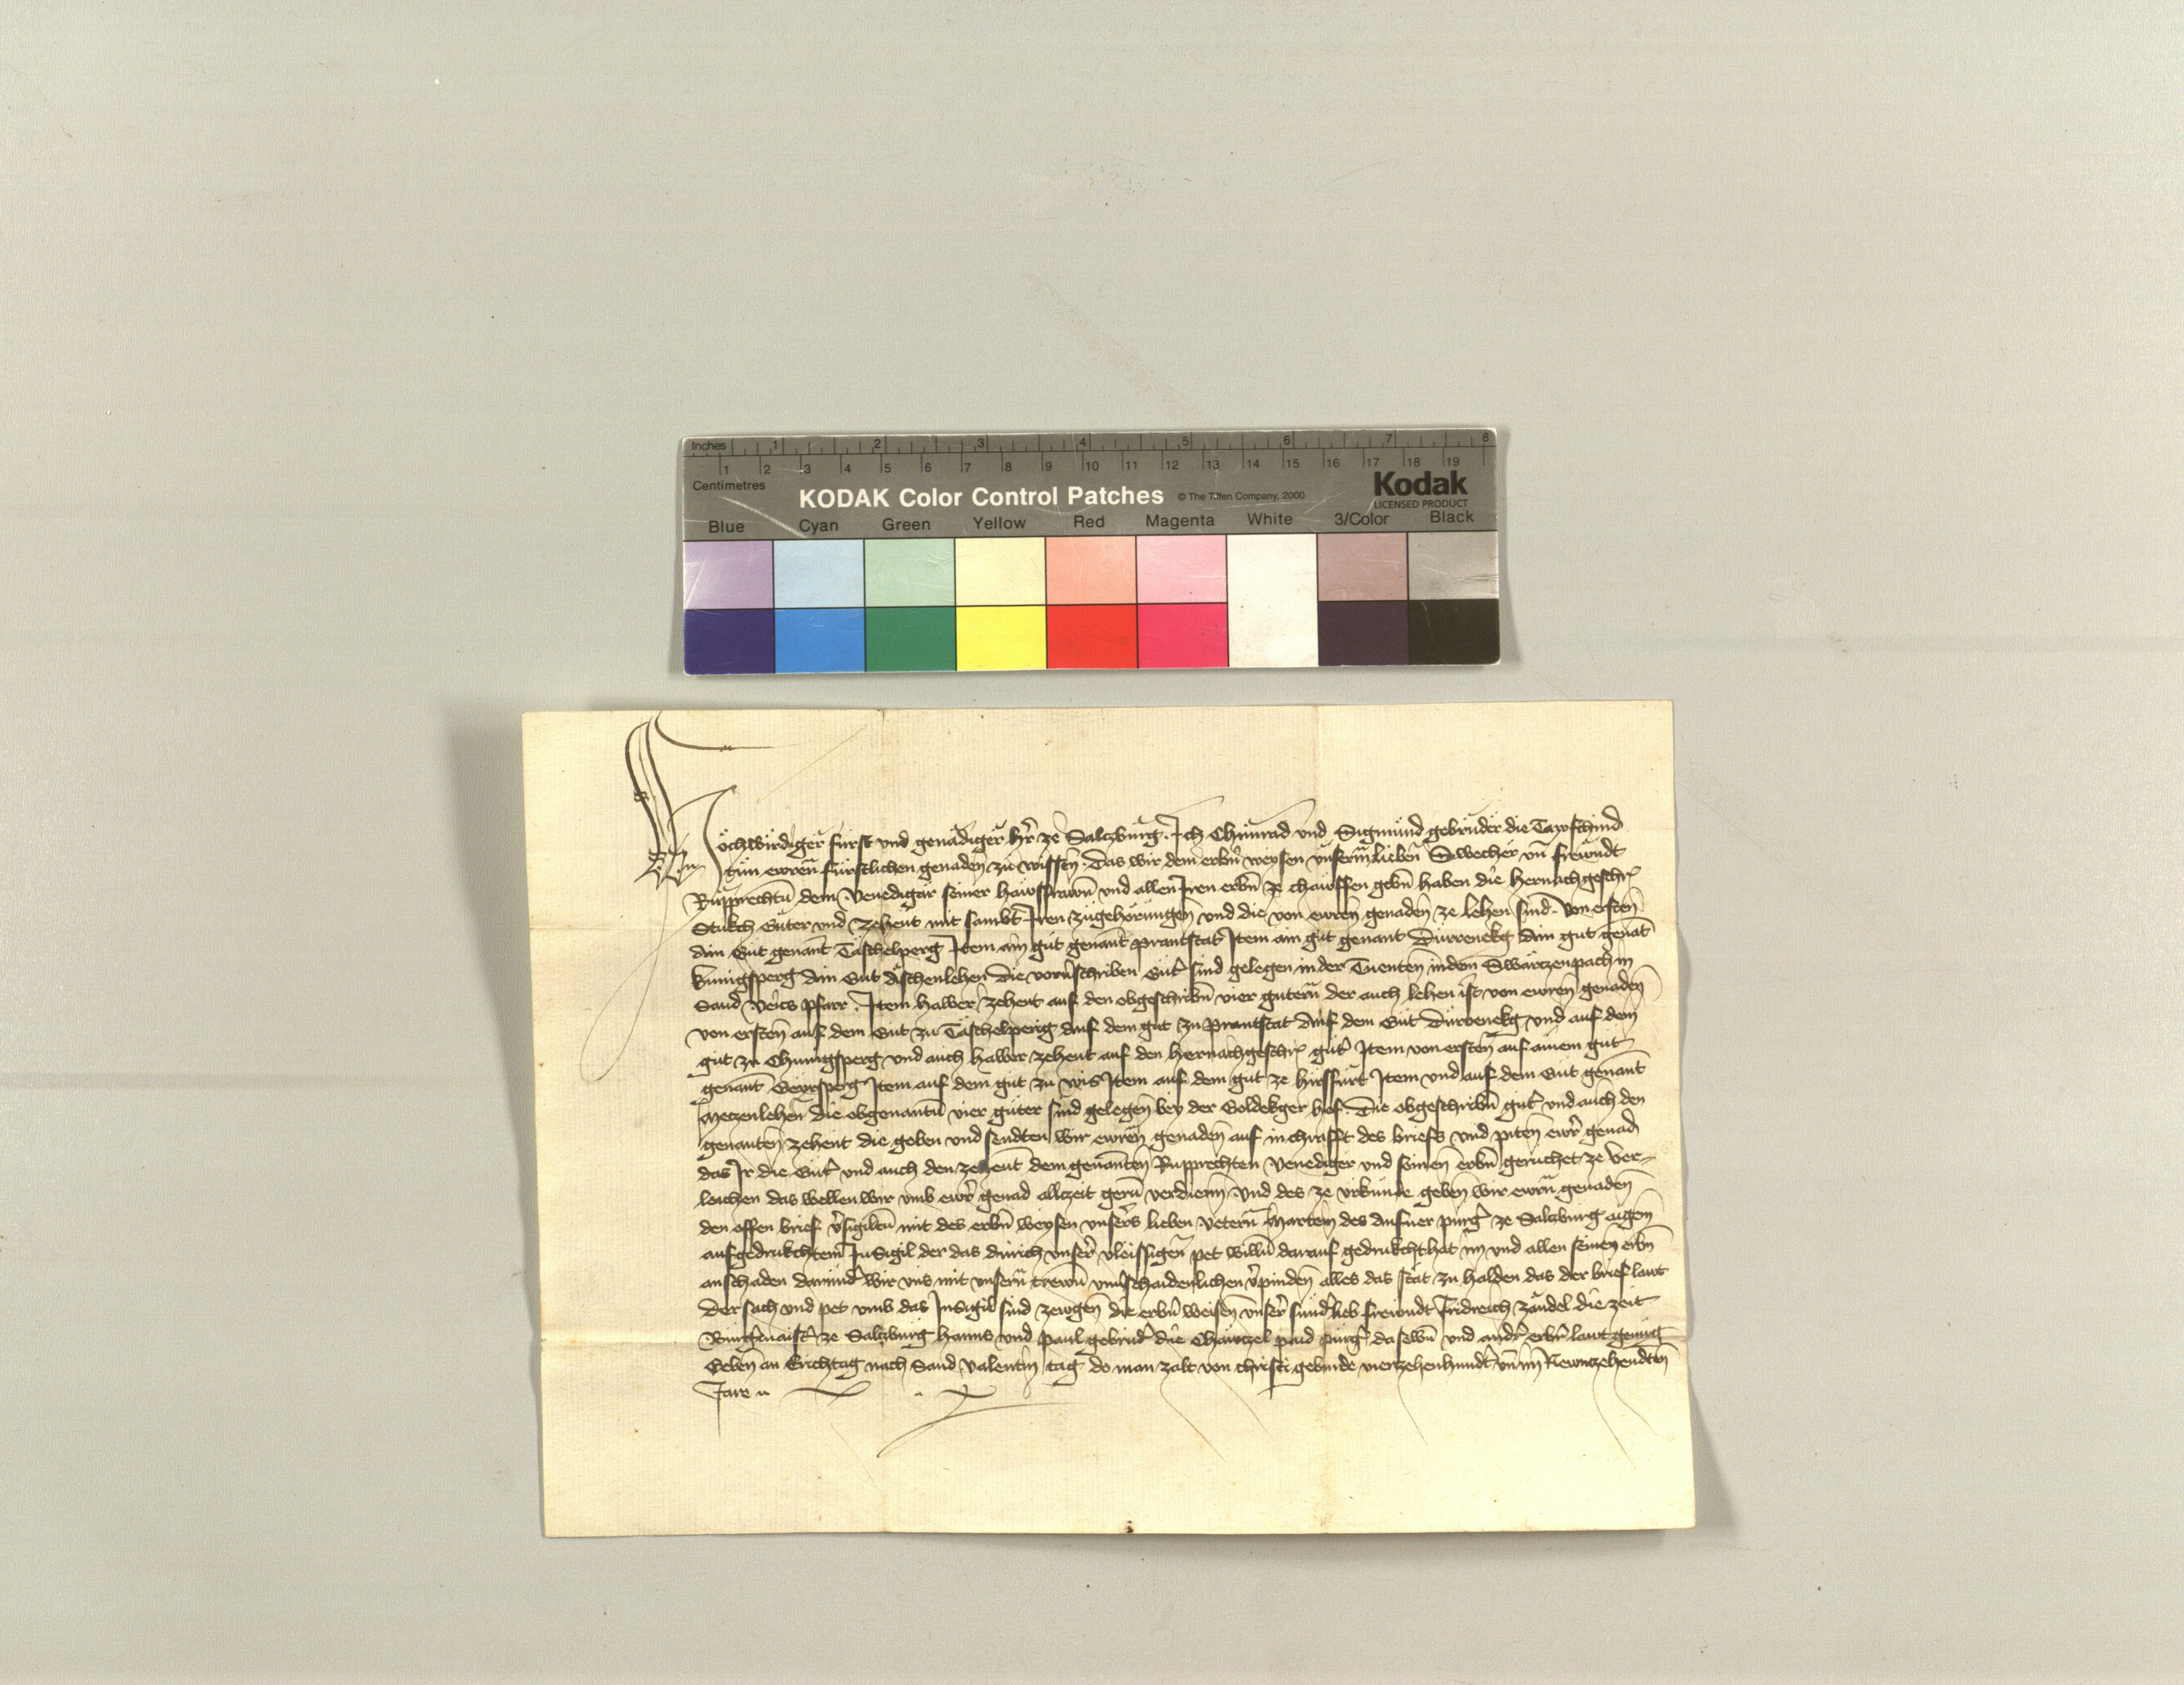 Inches 1 2 3 4 5 6 7 8
1 2 3 4 5 6 7 8 9 10 11 12 13 14 15 16 17 18 19
Centimetres
KODAK Color Control Patches © The Tiffen Company, 2000 Kodak
LICENSED PRODUCT
Blue Cyan Green Yellow Red Magenta White 3/Color Black
Hochwirdiger fürst und genädiger hr̄ ze Salczburg. Ich Chünrad und Sigmund gebrüder die Tawfchind
tün ewrn̄ fürstlichen genaden zu wissen. Das wir dem erbn̄ weysen unserm lieben Swecher un̄ freündt
Rupprechtn̄ dem Venedigar seiner hawsfrawn̄ und allen Iren erbn̄ ze chauffen gebn̄ haben die hernachgeschr
Stukch Güter und Zehent mit sambt Iren zügehörungen und die von ewren genaden ze lehen sind. Von ersten
Ain Gut genant Täschelperg Item ain güt genant prantstat Item ain güt genant Dürrenekg Ain gut genāt
künigsperg Ain Gut Aschenlehen die vorn̄schriben Güt sind gelegen in der Tuenten in dem Swartzenpach in
Sand Veics pfarr. Item halber zehent auf den obgeschribn̄ vier gutern der auch lehen ist von ewren genaden
von ersten auf dem Gut zu Täschelperig Auf dem gut zu prantstat Auf dem Güt Dürrenekg und auf dem
güt zu Chunigsperg und auch halber zehent auf den hernachgeschr güt Item von ersten auf ainem gut
genant Geyrsperg Item auf dem gut zu wis Item auf dem gut ze hirffürt Item und auf dem Güt genant
Metzenlehen die obgenantn̄ vier güter sind gelegen bey der Goldekger hof. Die obgeschribn̄ gut und auch den
genanten zehent die geben und sendten wir ewren genaden auf in chrafft des briefs und piten ewr genad
das Ir die Güt und auch den zehent dem genanten Rupprechten Venediger und seinen erbn̄ geruchet ze ver-
leichen das wellen wir umb ewr genad allzeit gern̄ verdienn̄. Und des ze urkunde geben wir ewrn̄ genaden
den offen brief v̄sigiltn̄ mit des erbn̄ weysen unsers lieben Vetern Marten des Aufner purg ze Salczburg aigen
aufgedrukchtem Insigil der das durich unser vleissigen pet willn̄ darauf gedrukcht hat im und allen seinen erbn̄
an schaden darund wir uns mit unsern̄ trewn̄ unuschaidenlichen v̄pinden alles das stät zu halden das der brief lawt
Der sach und pet umb das Insigil sind zewgen die erbn̄ weisen unser sund lieb freundt Fridreich zändel die zeit
Burgmaist ze Salczburg hanns und paul gebrud die Chäutzel paid purg daselbn̄ und andr erbn̄ lawt genüg
Geben an Erichtag nach Sand Valentin tag do man zalt von christi gebürde vierzehenhundt un̄ im Newnzehendten
Jare